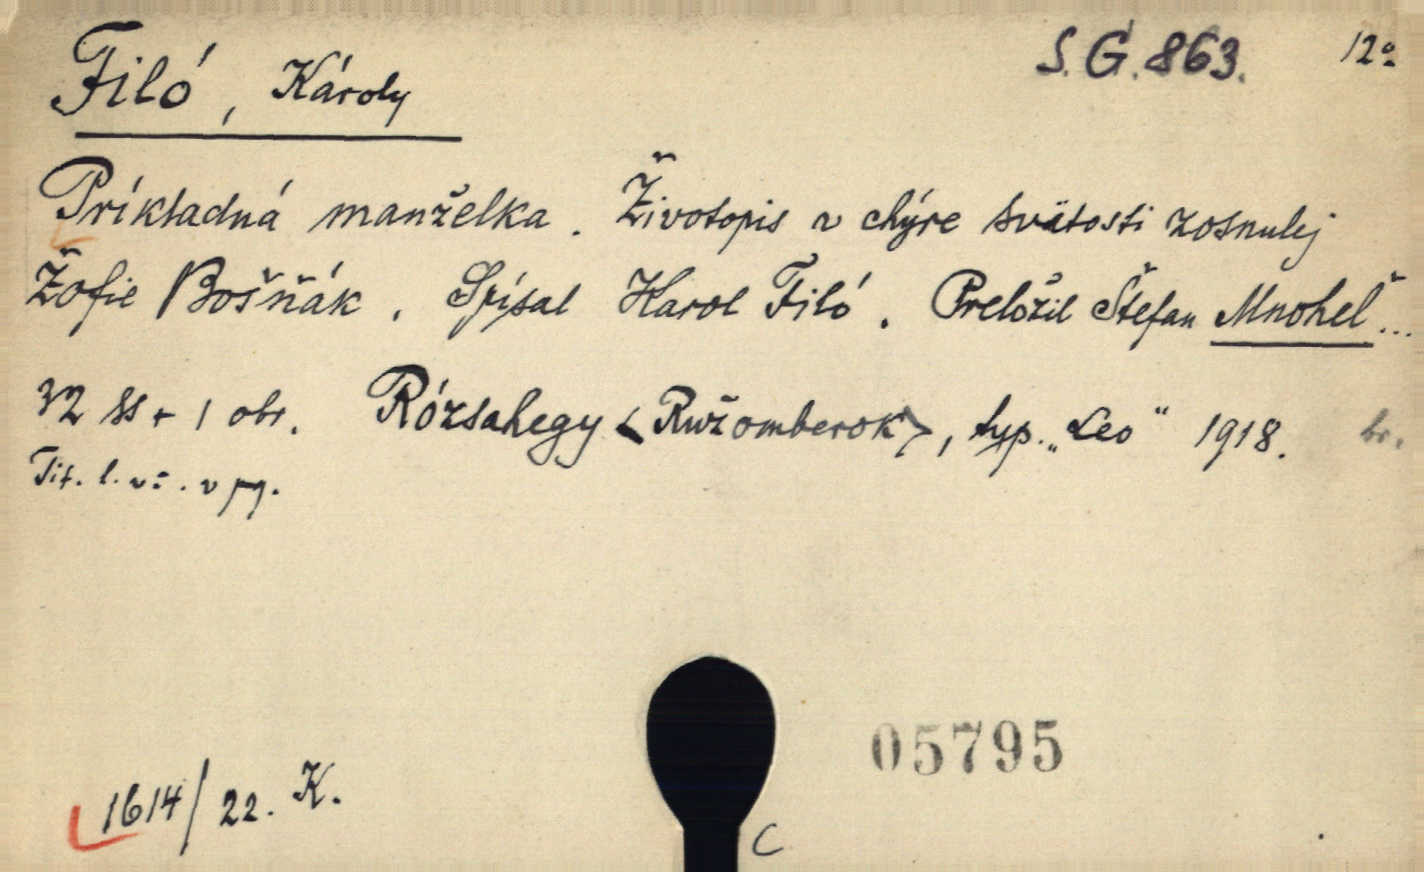 Filó, Károly S. G. 863. 12º
Príkladná manželka. Životopis v chýre svätosti zosnulej
Žofie Bošňák. Spísal Karol Filó. Preložil Štefan Mnoheľ...
32 ss + 1 obr. Rózsahegy <Ružomberok>, typ. „Leo" 1918. br.
Tit. l. vč. v pg.
05795
1614/22. K.
C